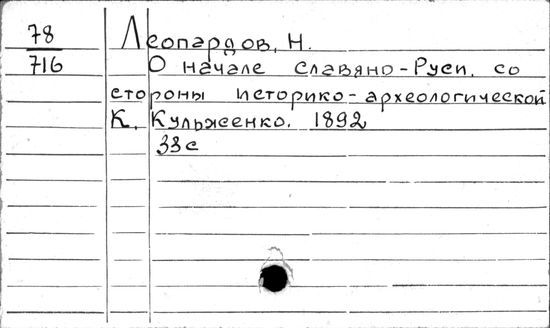 78
716
Леопардов, Н.
О начале славяно-Руси, со
стороны историко-археологической
К. Кульженко. 1892
33 с